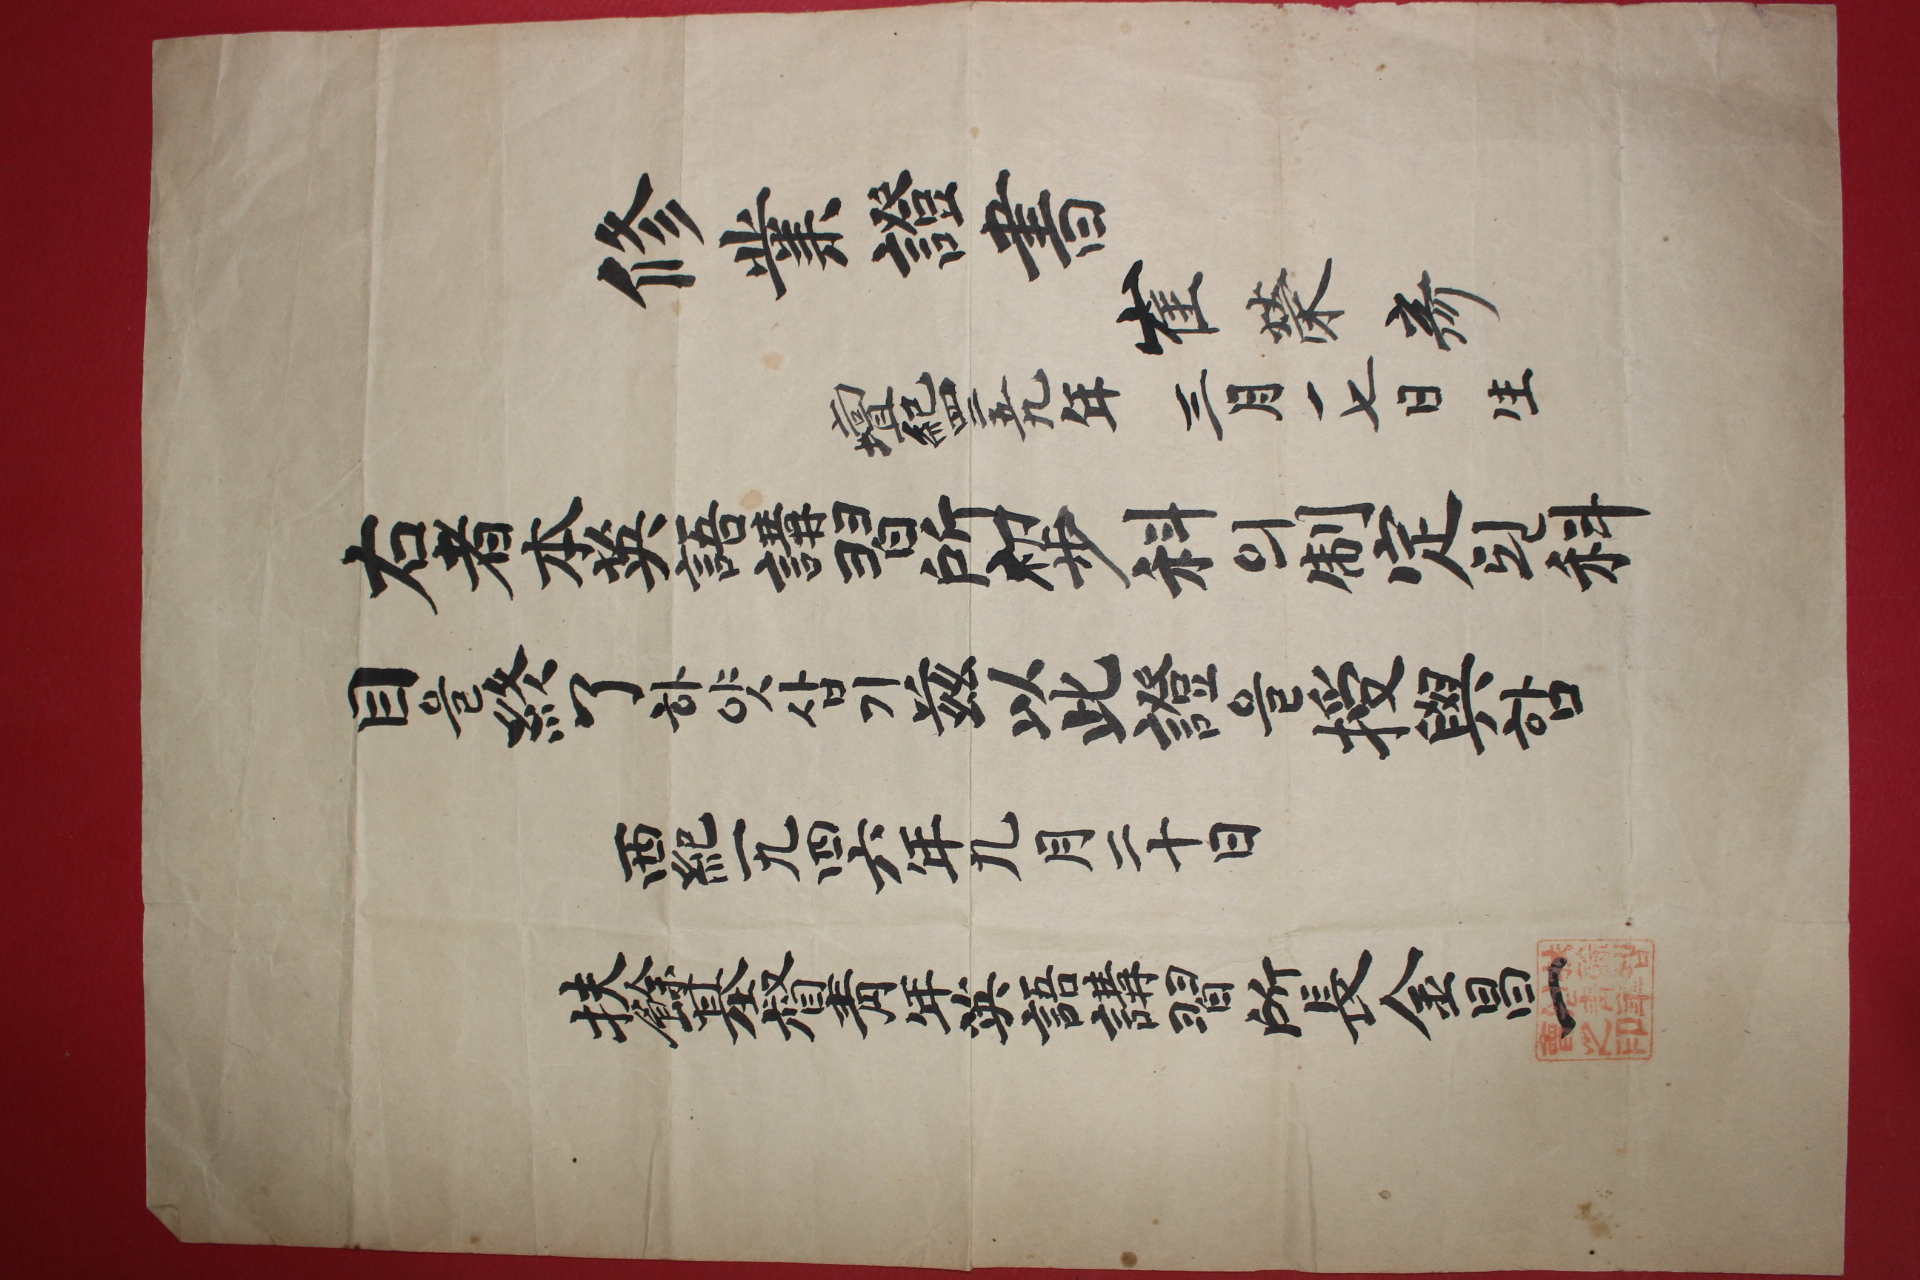 修業證書
崔榮
檀紀四二五九年 三月一七日 生
右者本英語講習所初步科의制定된科
目을終了하얏삽기玆以此證을授與함
西紀一九四六年九月二十日
扶餘基督靑年英語講習所長金昌一